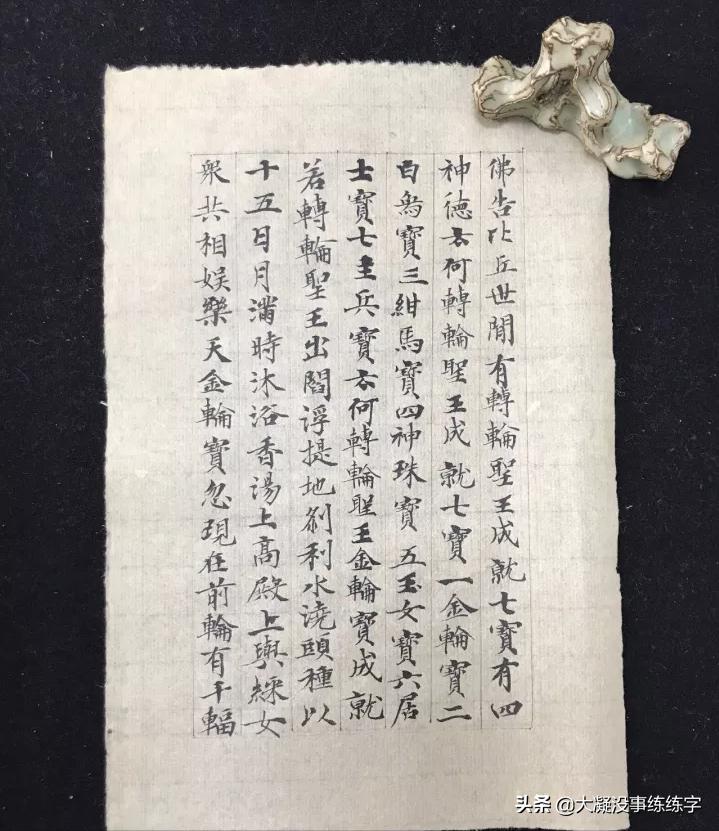 佛告比丘世間有轉輪聖王成就七寶有四
神德云何轉輪聖王成就七寶一金輪寶二
白象寶三紺馬寶四神珠寶五玉女寶六居
士寶七主兵寶云何轉輪聖王金輪寶成就
若轉輪聖王出閻浮提地刹利水澆頭種以
十五日月滿時沐浴香湯上高殿上與綵女
衆共相娛樂天金輪寶忽現在前輪有千輻
头条 @大凝没事练练字